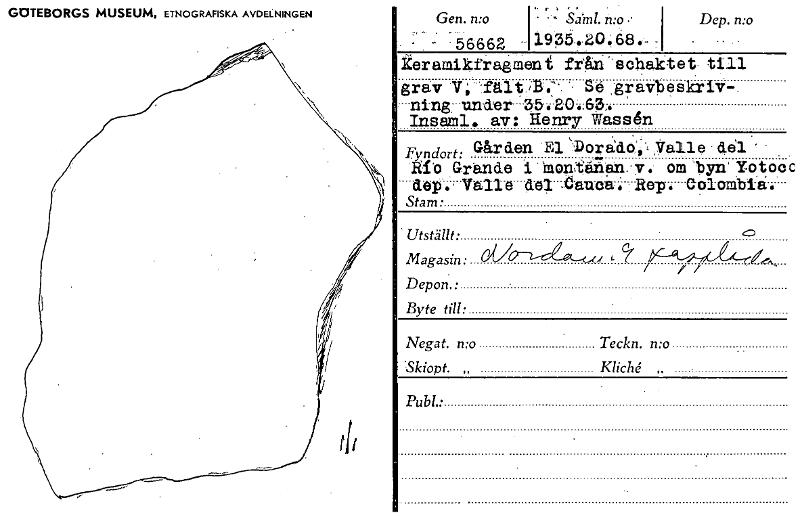 GÖTEBORGS MUSEUM, ETNOGRAFISKA AVDELNINGEN
Gen. n:o Saml. n:o Dep. n:o
56662 1935.20.68.
Keramikfragment från schaktet till
grav V, fält B. Se gravbeskriv-
ning under 35.20.63.
Insaml. av: Henry Wassén
Fyndort: Gården El Dorado, Valle del
Río Grande i montañan v. om byn Yotoco
dep. Valle del Cauca. Rep. Colombia.
Stam:
Utställt:
Magasin:
Depon.:
Byte till:
Negat. n:o Teckn. n:o
Skiopt. „ Kliché „
Publ.:
1/1